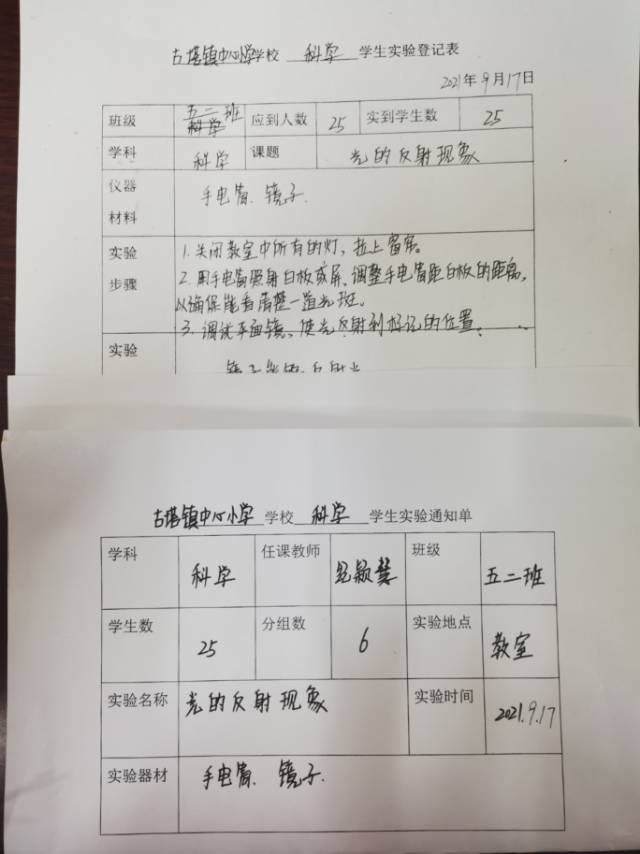 古塔镇中心小学学校 科学 学生实验登记表
2021年9月17日
班级 五二班 应到人数 25 实到学生数 25
学科 科学 课题 光的反射现象
仪器 材料 手电筒、镜子.
实验 步骤 1.关闭教室中所有的灯，拉上窗帘。
2.用手电筒照射白板或屏、调整手电筒距白板的距离，
以确保能看清楚一道光斑。
3.调试平面镜、使光反射到标记的位置。
实验
古塔镇中心小学 学校 科学 学生实验通知单
学科 科学 任课教师 颖慧 班级 五二班
学生数 25 分组数 6 实验地点 教室
实验名称 光的反射现象 实验时间 2021.9.17
实验器材 手电筒、镜子.